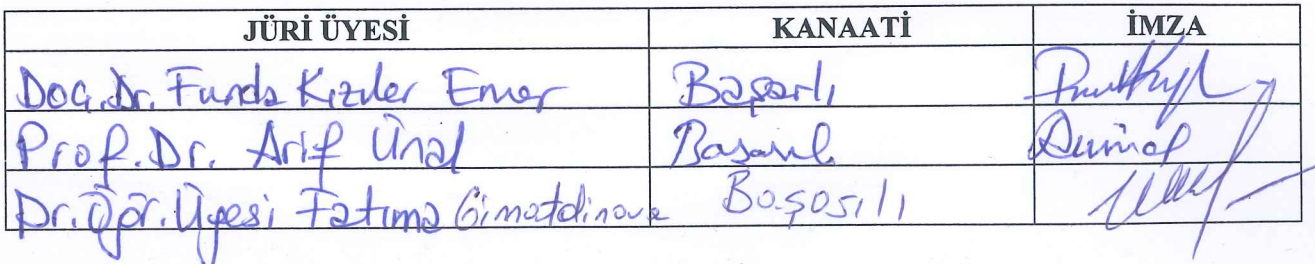 JÜRİ ÜYESİ KANAATİ İMZA
Doç. Dr. Funda Kızıler Emer Başarılı
Prof. Dr. Arif Ünal Başarılı
Dr. Öğr. Üyesi Fatıma Gimatdinova Başarılı